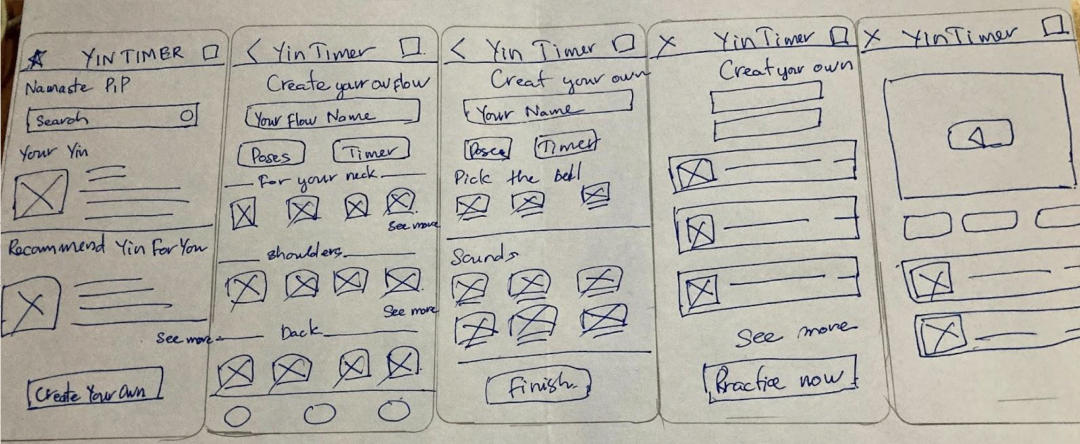 YIN TIMER
Namaste PiP
Search
Your Yin
Recommend Yin For You
See more
Create Your Own
Yin Timer
Create your own flow
Your Flow Name
Poses
Timer
For your neck
See more
Shoulders
See more
back
Yin Timer
Creat your own
Your Name
Poses
Timer
Pick the bell
Sounds
Finish
Yin Timer
Creat your own
See more
Practice now
Yin Timer